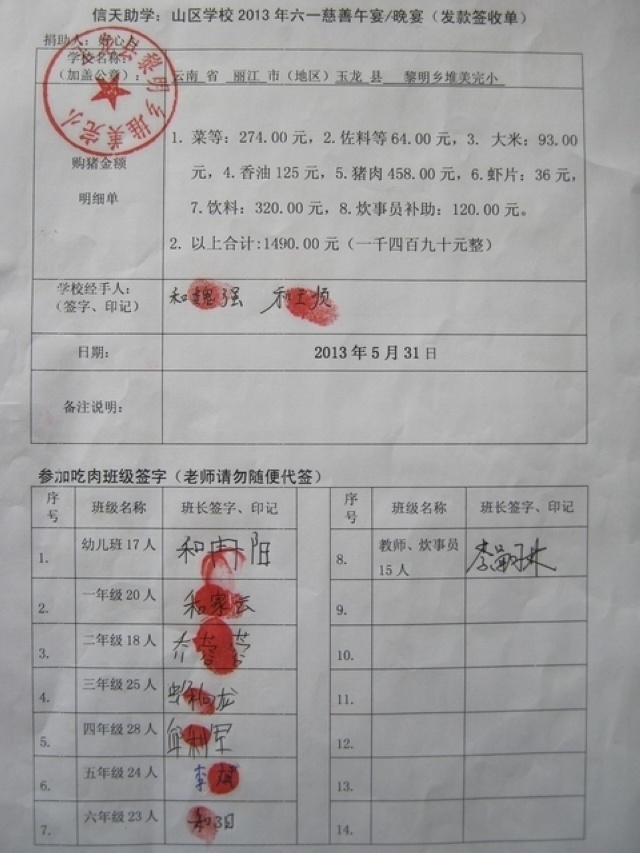 信天助学：山区学校2013年六一慈善午宴/晚宴（发款签收单）
捐助人：好心人
学校名称：
（加盖公章）： 云南 省 丽江 市（地区）玉龙 县 黎明乡堆美完小
黎明乡堆美完小
购猪金额
明细单
1. 菜等：274.00元，2.佐料等64.00元，3. 大米：93.00
元，4.香油125元，5.猪肉458.00元，6.虾片：36元，
7.饮料：320.00元，8.炊事员补助：120.00元。
2. 以上合计:1490.00元（一千四百九十元整）
学校经手人：
（签字、印记）
和魏强
日期：
2013年5月31日
备注说明：
参加吃肉班级签字（老师请勿随便代签）
序号 班级名称 班长签字、印记 序号 班级名称 班长签字、印记
1. 幼儿班17人
2. 一年级20人 和家云
3. 二年级18人
4. 三年级25人
5. 四年级28人
6. 五年级24人 李斌
7. 六年级23人 和阳
8. 教师、炊事员
15人
9.
10.
11.
12.
13.
14.